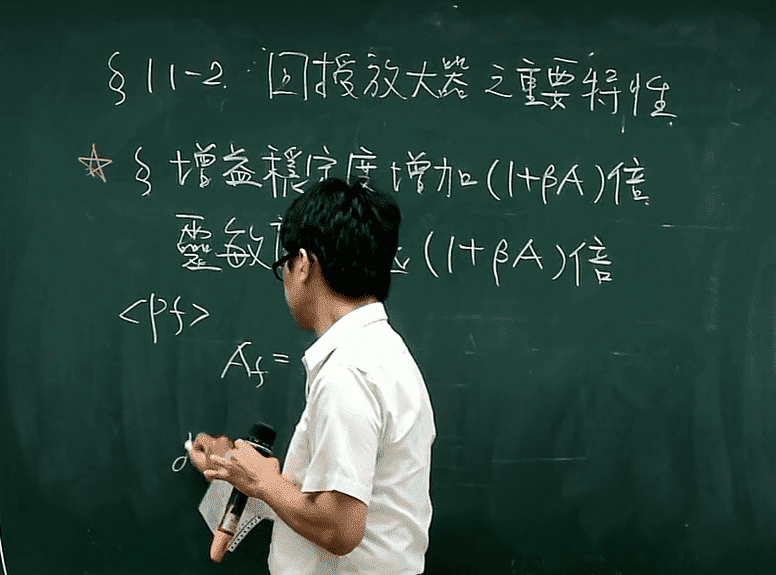 § 11-2. 回授放大器之重要特性
☆ § 增益穩定度增加(1+βA)倍
靈敏 (1+βA)倍
<pf>
A_f =
d